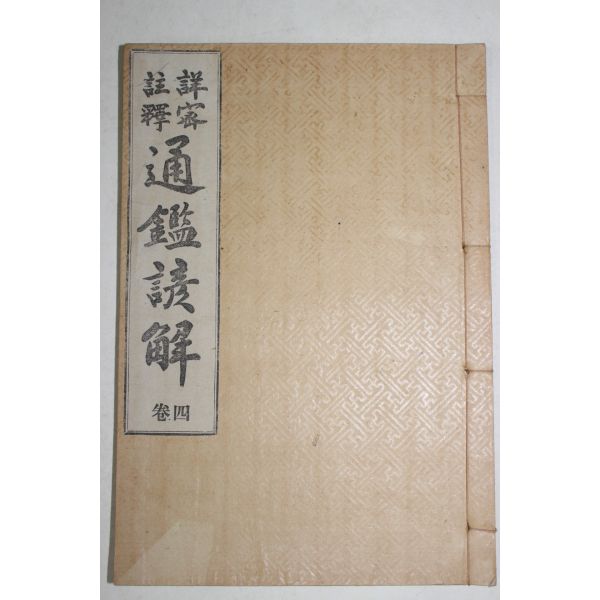 詳密
註釋
通鑑諺解
卷四